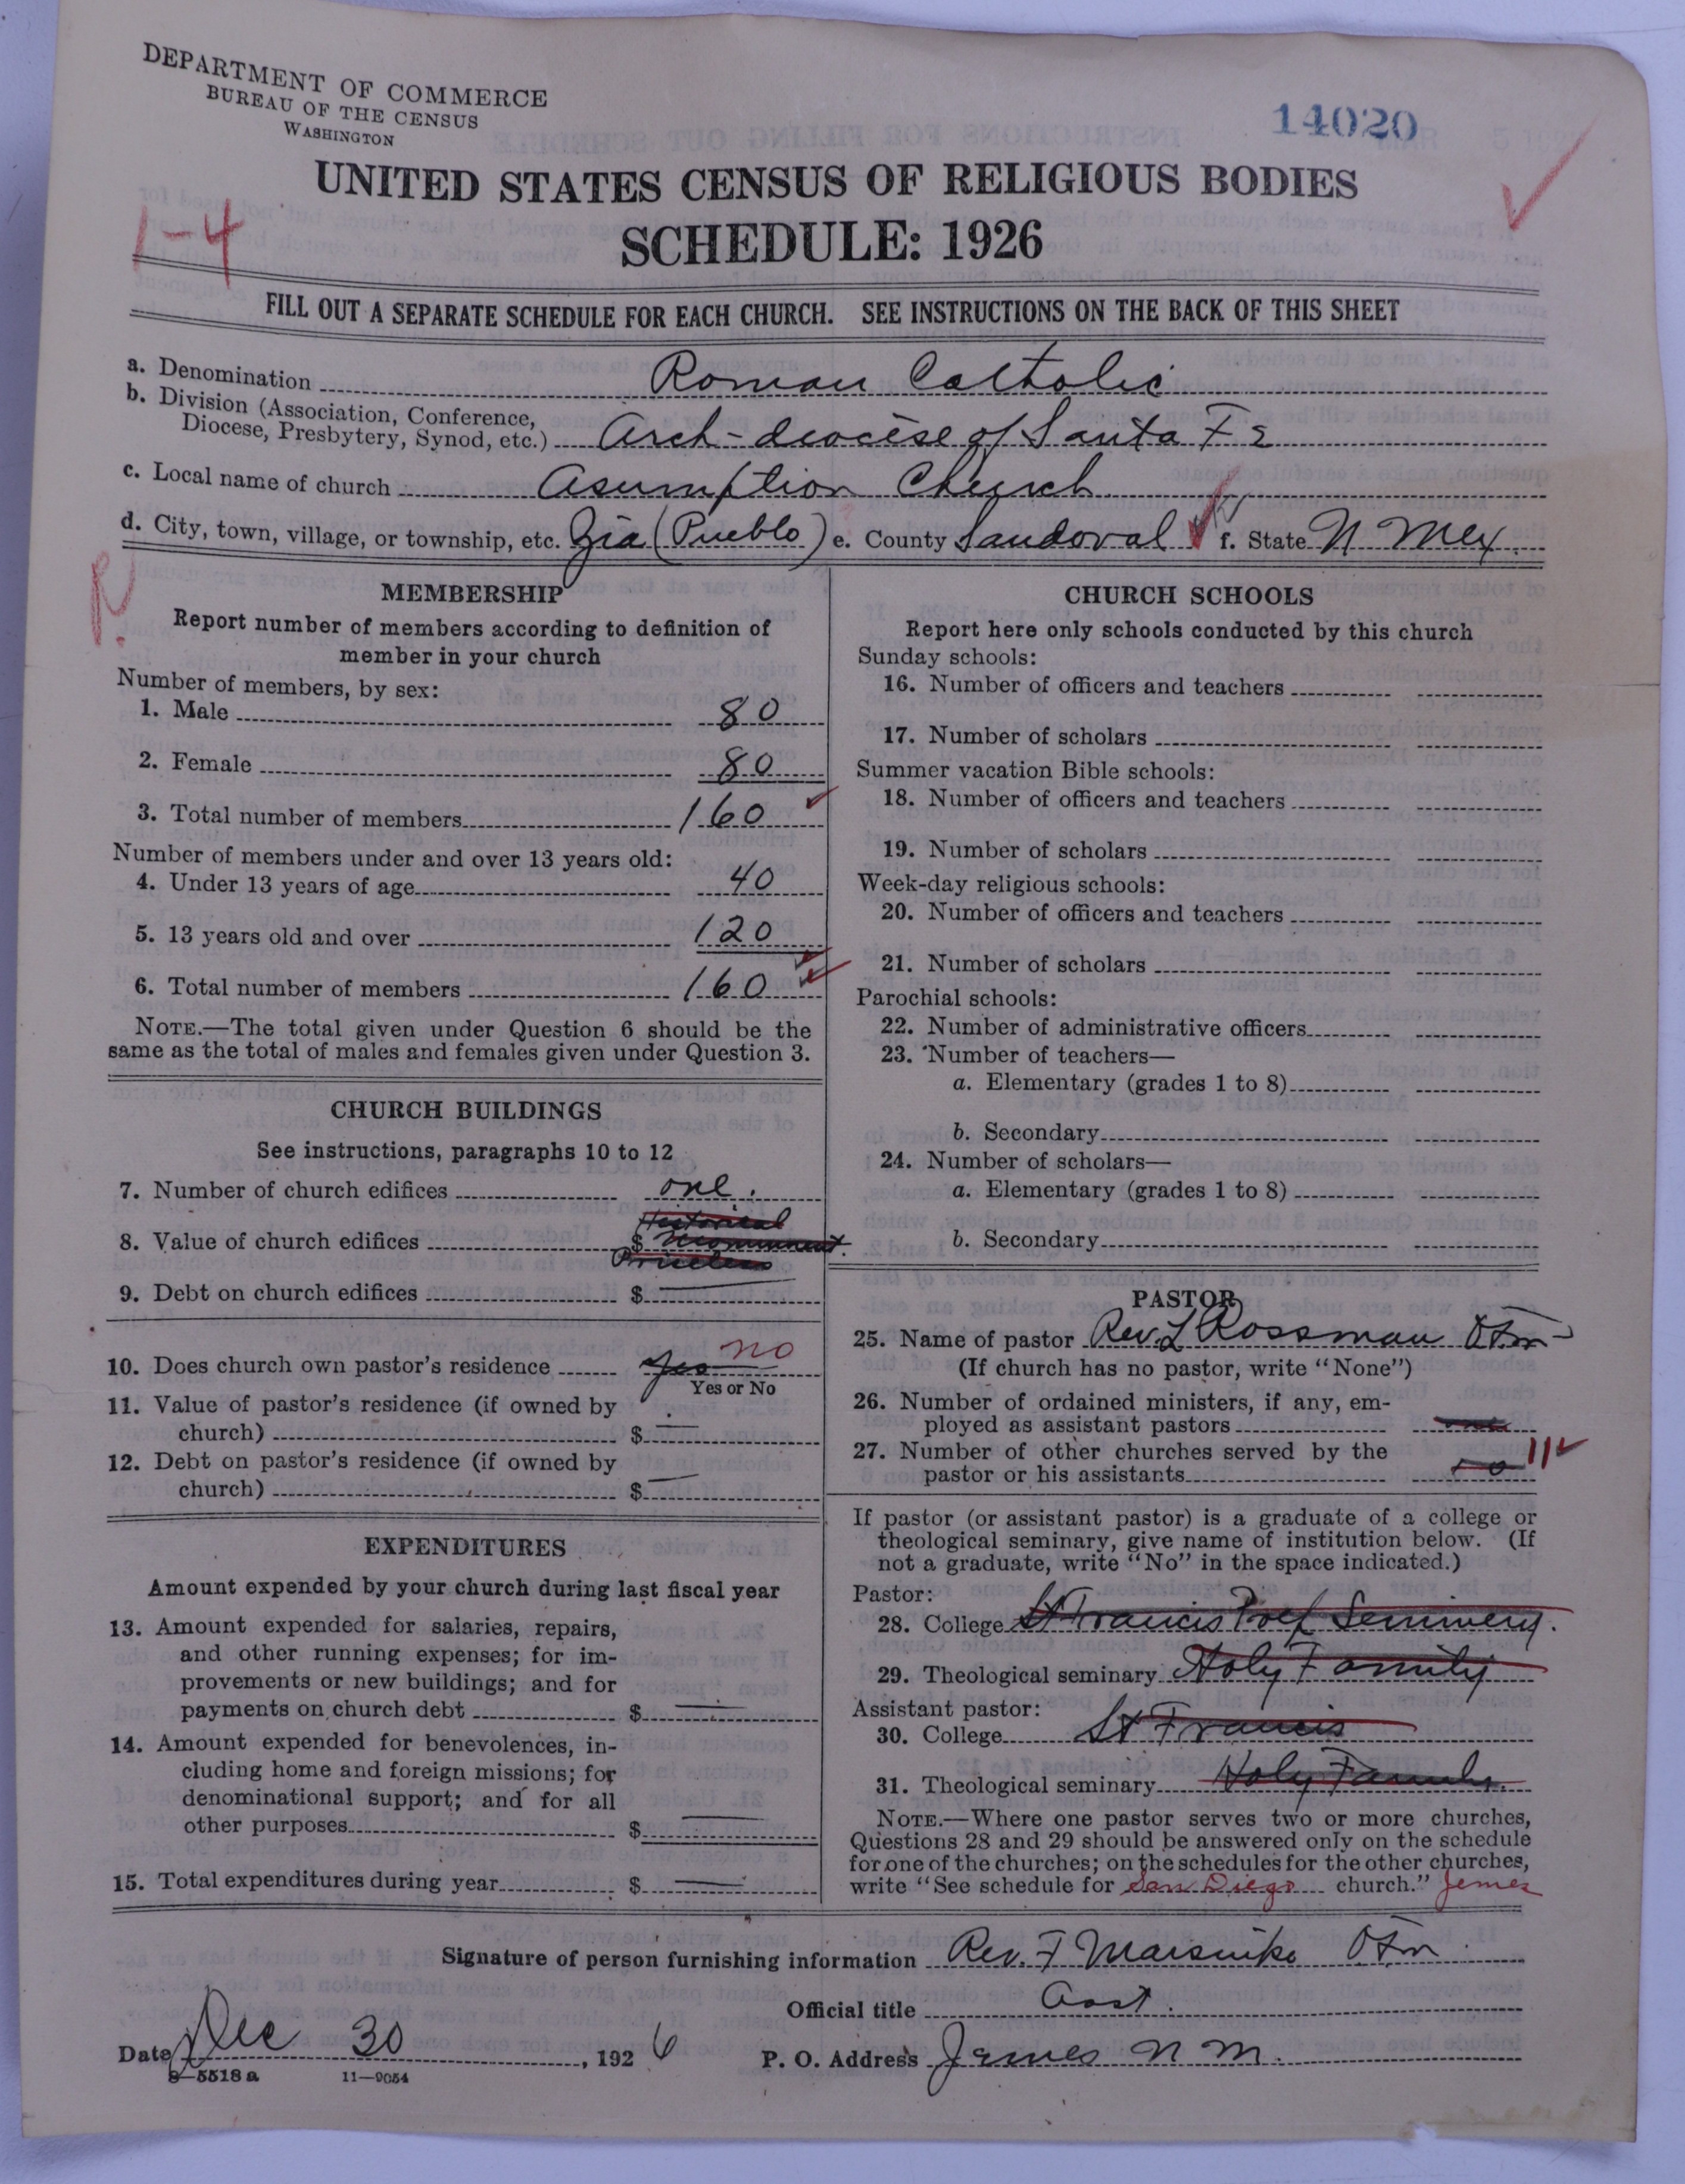 DEPARTMENT OF COMMERCE
BUREAU OF THE CENSUS
WASHINGTON
14020
UNITED STATES CENSUS OF RELIGIOUS BODIES
1-4
SCHEDULE: 1926
FILL OUT A SEPARATE SCHEDULE FOR EACH CHURCH. SEE INSTRUCTIONS ON THE BACK OF THIS SHEET
a. Denomination Roman Catholic
b. Division (Association, Conference,
Diocese, Presbytery, Synod, etc.) Arch-diocese of Santa Fe
c. Local name of church Asumption Church
d. City, town, village, or township, etc. Zia (Pueblo) e. County Sandoval f. State N Mex.
R.
MEMBERSHIP
Report number of members according to definition of
member in your church
Number of members, by sex:
1. Male 80
2. Female 80
3. Total number of members 160
Number of members under and over 13 years old:
4. Under 13 years of age 40
5. 13 years old and over 120
6. Total number of members 160
NOTE.—The total given under Question 6 should be the
same as the total of males and females given under Question 3.
CHURCH BUILDINGS
See instructions, paragraphs 10 to 12
7. Number of church edifices one.
Historical
8. Value of church edifices $ Monument.
Priceless
9. Debt on church edifices $ —
10. Does church own pastor's residence yes no
Yes or No
11. Value of pastor's residence (if owned by
church) $ —
12. Debt on pastor's residence (if owned by
church) $ —
EXPENDITURES
Amount expended by your church during last fiscal year
13. Amount expended for salaries, repairs,
and other running expenses; for im-
provements or new buildings; and for
payments on church debt $ —
14. Amount expended for benevolences, in-
cluding home and foreign missions; for
denominational support; and for all
other purposes $ —
15. Total expenditures during year $ —
CHURCH SCHOOLS
Report here only schools conducted by this church
Sunday schools:
16. Number of officers and teachers
17. Number of scholars
Summer vacation Bible schools:
18. Number of officers and teachers
19. Number of scholars
Week-day religious schools:
20. Number of officers and teachers
21. Number of scholars
Parochial schools:
22. Number of administrative officers
23. Number of teachers—
a. Elementary (grades 1 to 8)
b. Secondary
24. Number of scholars—
a. Elementary (grades 1 to 8)
b. Secondary
PASTOR
25. Name of pastor Rev. L Rossman Ofm
(If church has no pastor, write "None")
26. Number of ordained ministers, if any, em-
ployed as assistant pastors one
27. Number of other churches served by the
pastor or his assistants 11
If pastor (or assistant pastor) is a graduate of a college or
theological seminary, give name of institution below. (If
not a graduate, write "No" in the space indicated.)
Pastor:
28. College St Francis Prep Seminery.
29. Theological seminary Holy Family
Assistant pastor:
30. College St Francis
31. Theological seminary Holy Family.
NOTE.—Where one pastor serves two or more churches,
Questions 28 and 29 should be answered only on the schedule
for one of the churches; on the schedules for the other churches,
write "See schedule for San Diego church." Jemez
Signature of person furnishing information Rev. F Ofm
Official title Asst.
Date Dec 30, 1926 P. O. Address Jemes N M.
8—5518 a 11—9054